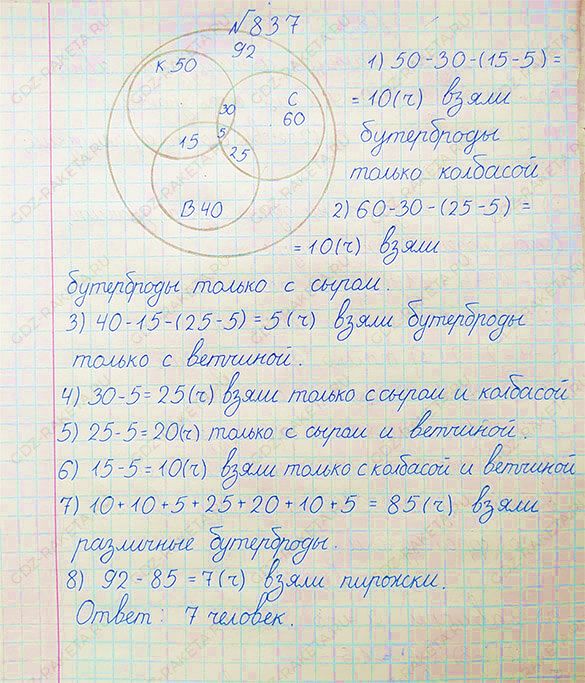 №837
92
К 50
С
60
30
5
15
25
В 40
1) 50-30-(15-5)=
=10(ч) взяли
бутерброды
только колбасой
2) 60-30-(25-5)=
=10(ч) взяли
бутерброды только с сыром.
3) 40-15-(25-5)=5(ч) взяли бутерброды
только с ветчиной.
4) 30-5=25(ч) взяли только с сыром и колбасой
5) 25-5=20(ч) только с сыром и ветчиной.
6) 15-5=10(ч) взяли только с колбасой и ветчиной
7) 10+10+5+25+20+10+5=85(ч) взяли
различные бутерброды.
8) 92-85=7(ч) взяли пирожки.
Ответ: 7 человек.
GDZ-RAKETA.RU